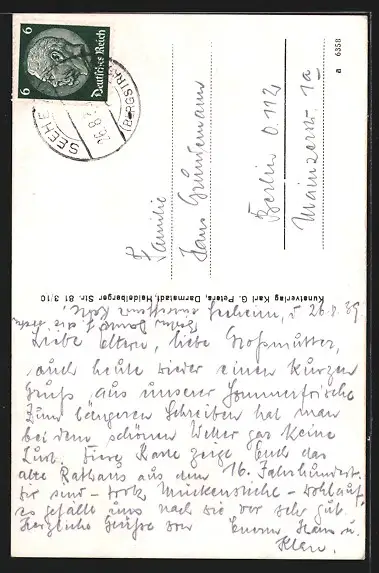 6 Deutsches Reich 6
SEEHE
26.8.
(BERGSTR
a 6358
Familie
Hans Grundemann
Berlin O.112
Mainzerstr. 1a
Kunstverlag Karl G. Peters, Darmstadt, Heidelberger Str. 81 3/10
Seeheim, d 26.8.39.
Besten Dank f. die
Karte!
Liebe Eltern, liebe Großmutter,
auch heute wieder einen kurzen
Gruß aus unserer Sommerfrische
Zum längeren Schreiben hat man
bei dem schönen Wetter gar keine
Lust. Karte zeigt Euch das
alte Rathaus aus dem 16. Jahrhundert.
Wir sind – trotz Mückenstiche – wohlauf,
es gefällt uns nach wie vor sehr gut.
Herzliche Grüße von Euern Hans u.
Klara.